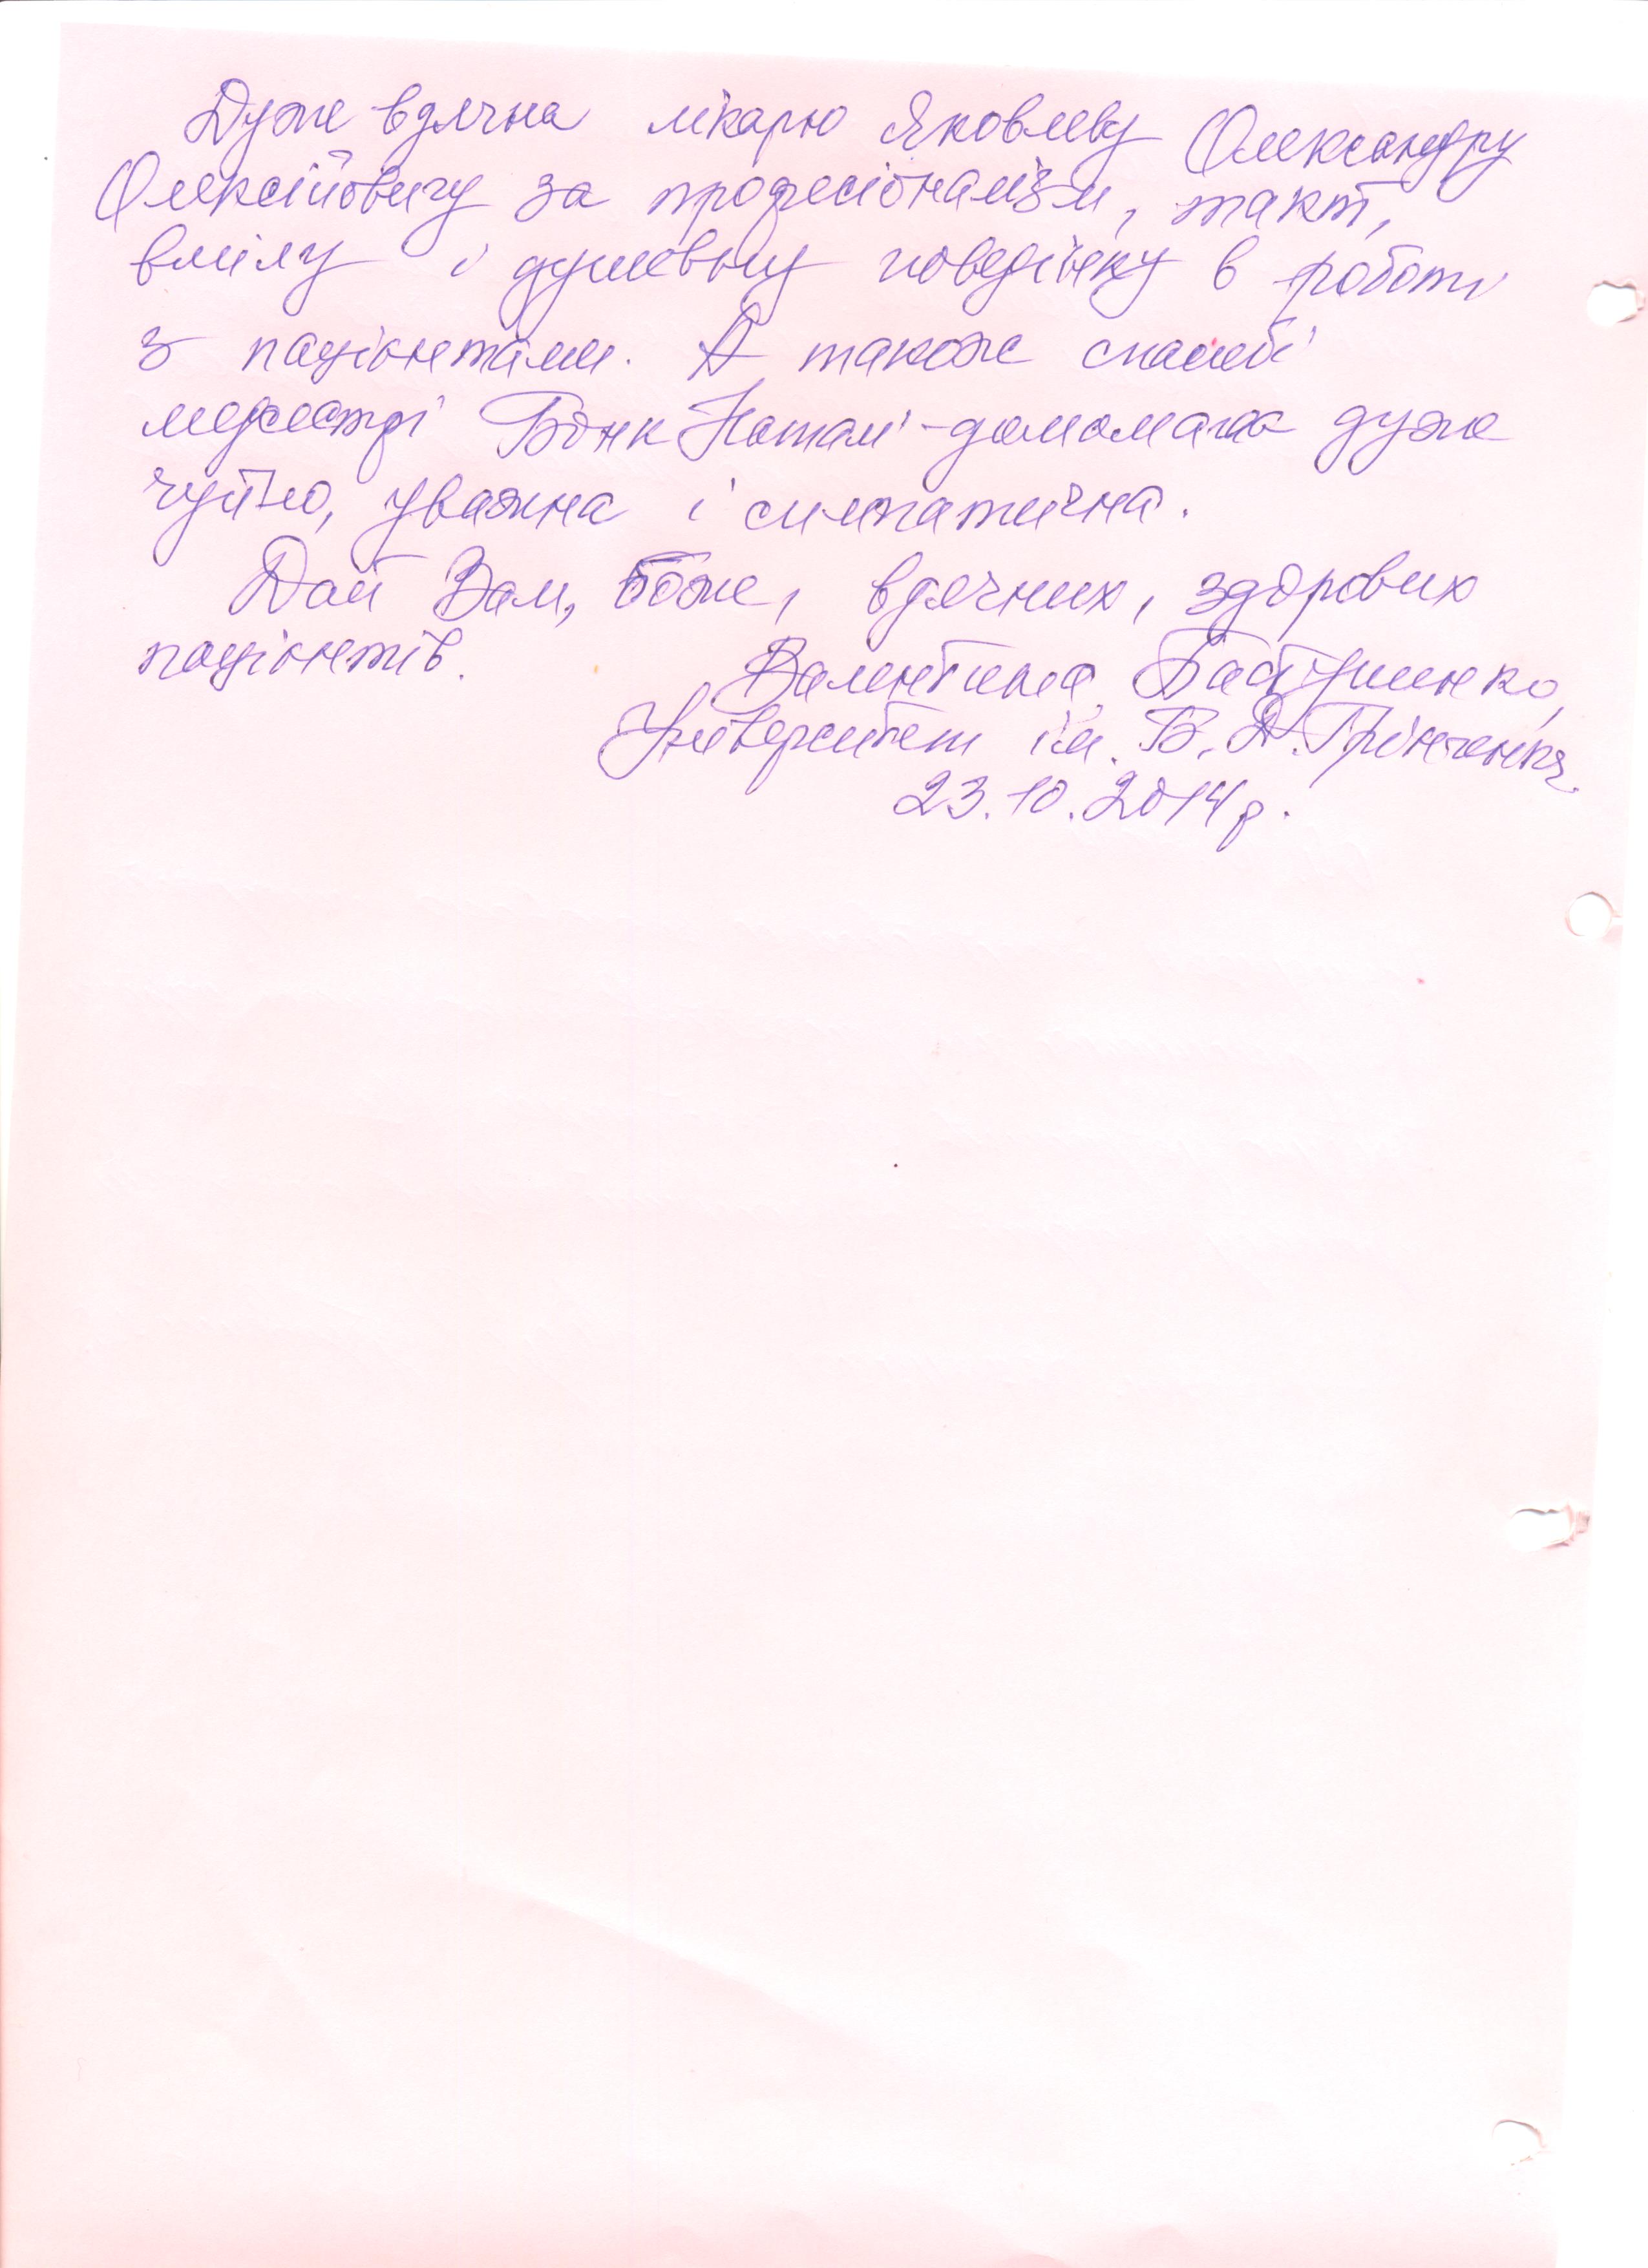 Дуже вдячна лікарю Яковлеву Олександру
Олексійовичу за професіоналізм, такт,
вмілу і душевну поведінку в роботі
з пацієнтами. А також спасибі
медсестрі Бонк Наталі - допомагає дуже
чуйно, уважна і симпатична.
Дай Вам, Боже, вдячних, здорових
пацієнтів.
Валентина
Університет ім. Б. Д. Грінченка.
23.10.2014 р.